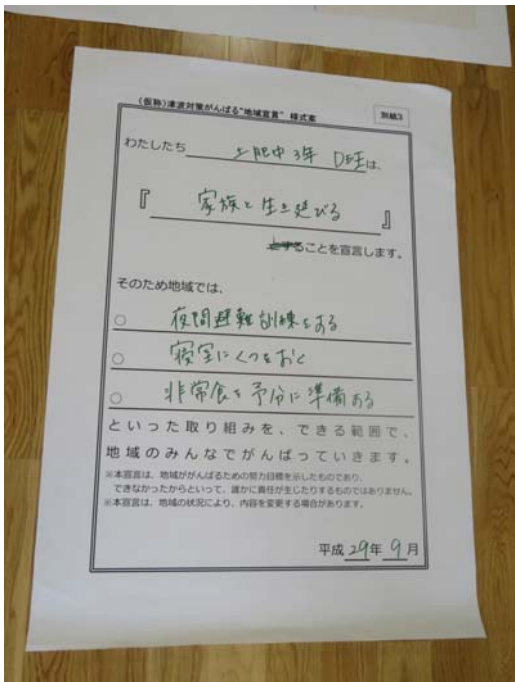 (仮称)津波対策がんばる"地域宣言" 様式案
別紙3
わたしたち 土肥中3年 D班は、
『 家族と生き延びる 』
とすることを宣言します。
そのため地域では、
○ 夜間避難訓練をする
○ 寝室にくつをおく
○ 非常食を予分に準備する
といった取り組みを、できる範囲で、
地域のみんなでがんばっていきます。
※本宣言は、地域ががんばるための努力目標を示したものであり、
できなかったからといって、誰かに責任が生じたりするものではありません。
※本宣言は、地域の状況により、内容を変更する場合があります。
平成 29年 9月